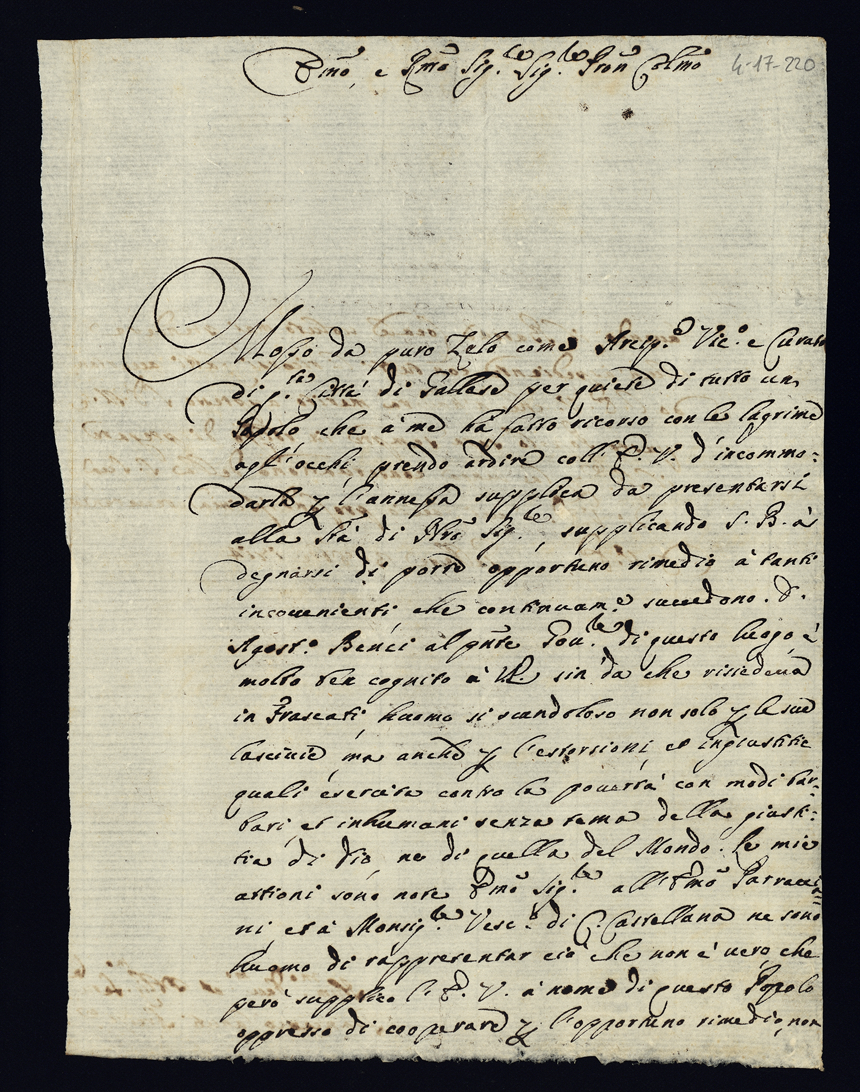 Em̃o, e Rm̃o Sig.re Sig.re Pron̄ Colm̃o 4-17-220
Mosso da puro Zelo come Arcip.e Vic.o e Curato
di q.ta Città di Gallese per quiete di tutto un
Popolo che à me hà fatto ricorso con le lagrime
agl'occhi, prendo ardire coll'E. V. d'incommo-
darla p l'annessa supplica da presentarsi
alla Stà di Nrõ Sig.re, supplicando S. B. à
degnarsi di porre opportuno rimedio à tanti
incovenienti che continuam.e succedono. D.
Agost.o Benci al pñte Gou.re di questo luogo è
molto ben cognito à VE. sin da che risiedeua
in Frascati, huomo si scandoloso non solo p le sue
lasciuie ma anche p l'estorsioni, et ingiustitie
quali esercita contro la pouertà con modi bar-
bari, et inhumani senza tema della giusti-
tia di Dio ne di quella del Mondo. Le mie
attioni sono note Em̃o Sig.re all'Em̃o Parracia-
ni et à Monsig.re Vesc.o di C. Castellana ne sono
huomo di rappresentar ciò che non è uero che
però supplico l'E. V. à nome di questo Popolo
oppresso di cooperare p l'opportuno rimedio, non